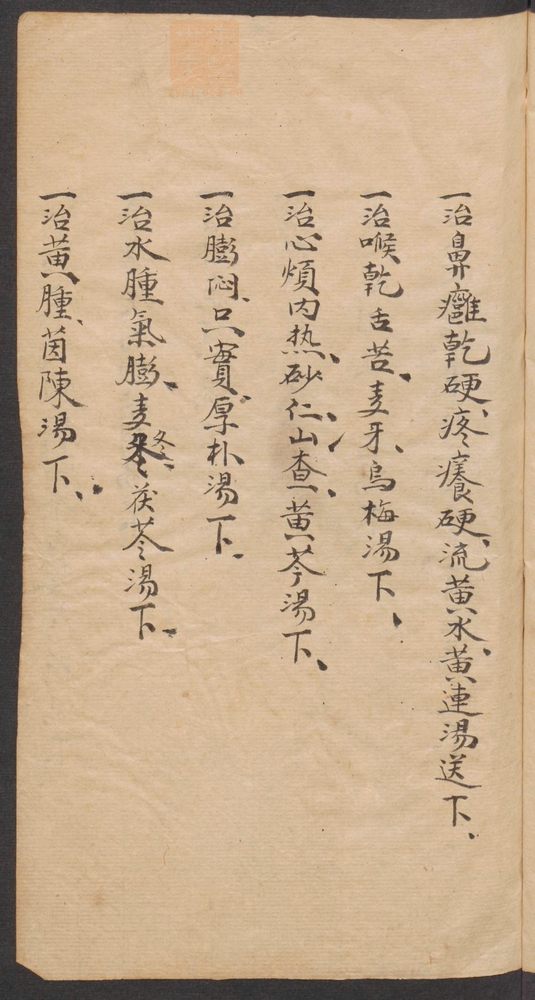 一治鼻癰乾硬、疼癢硬、流黄水、黄連湯送下、
一治喉乾舌苦、麦牙、烏梅湯下、
一治心煩内热、砂仁、山查、黄芩湯下、
一治膨闷、只實厚朴湯下、
一治水腫氣膨、麦冬、茯苓湯下、
一治黄腫、茵陳湯下、